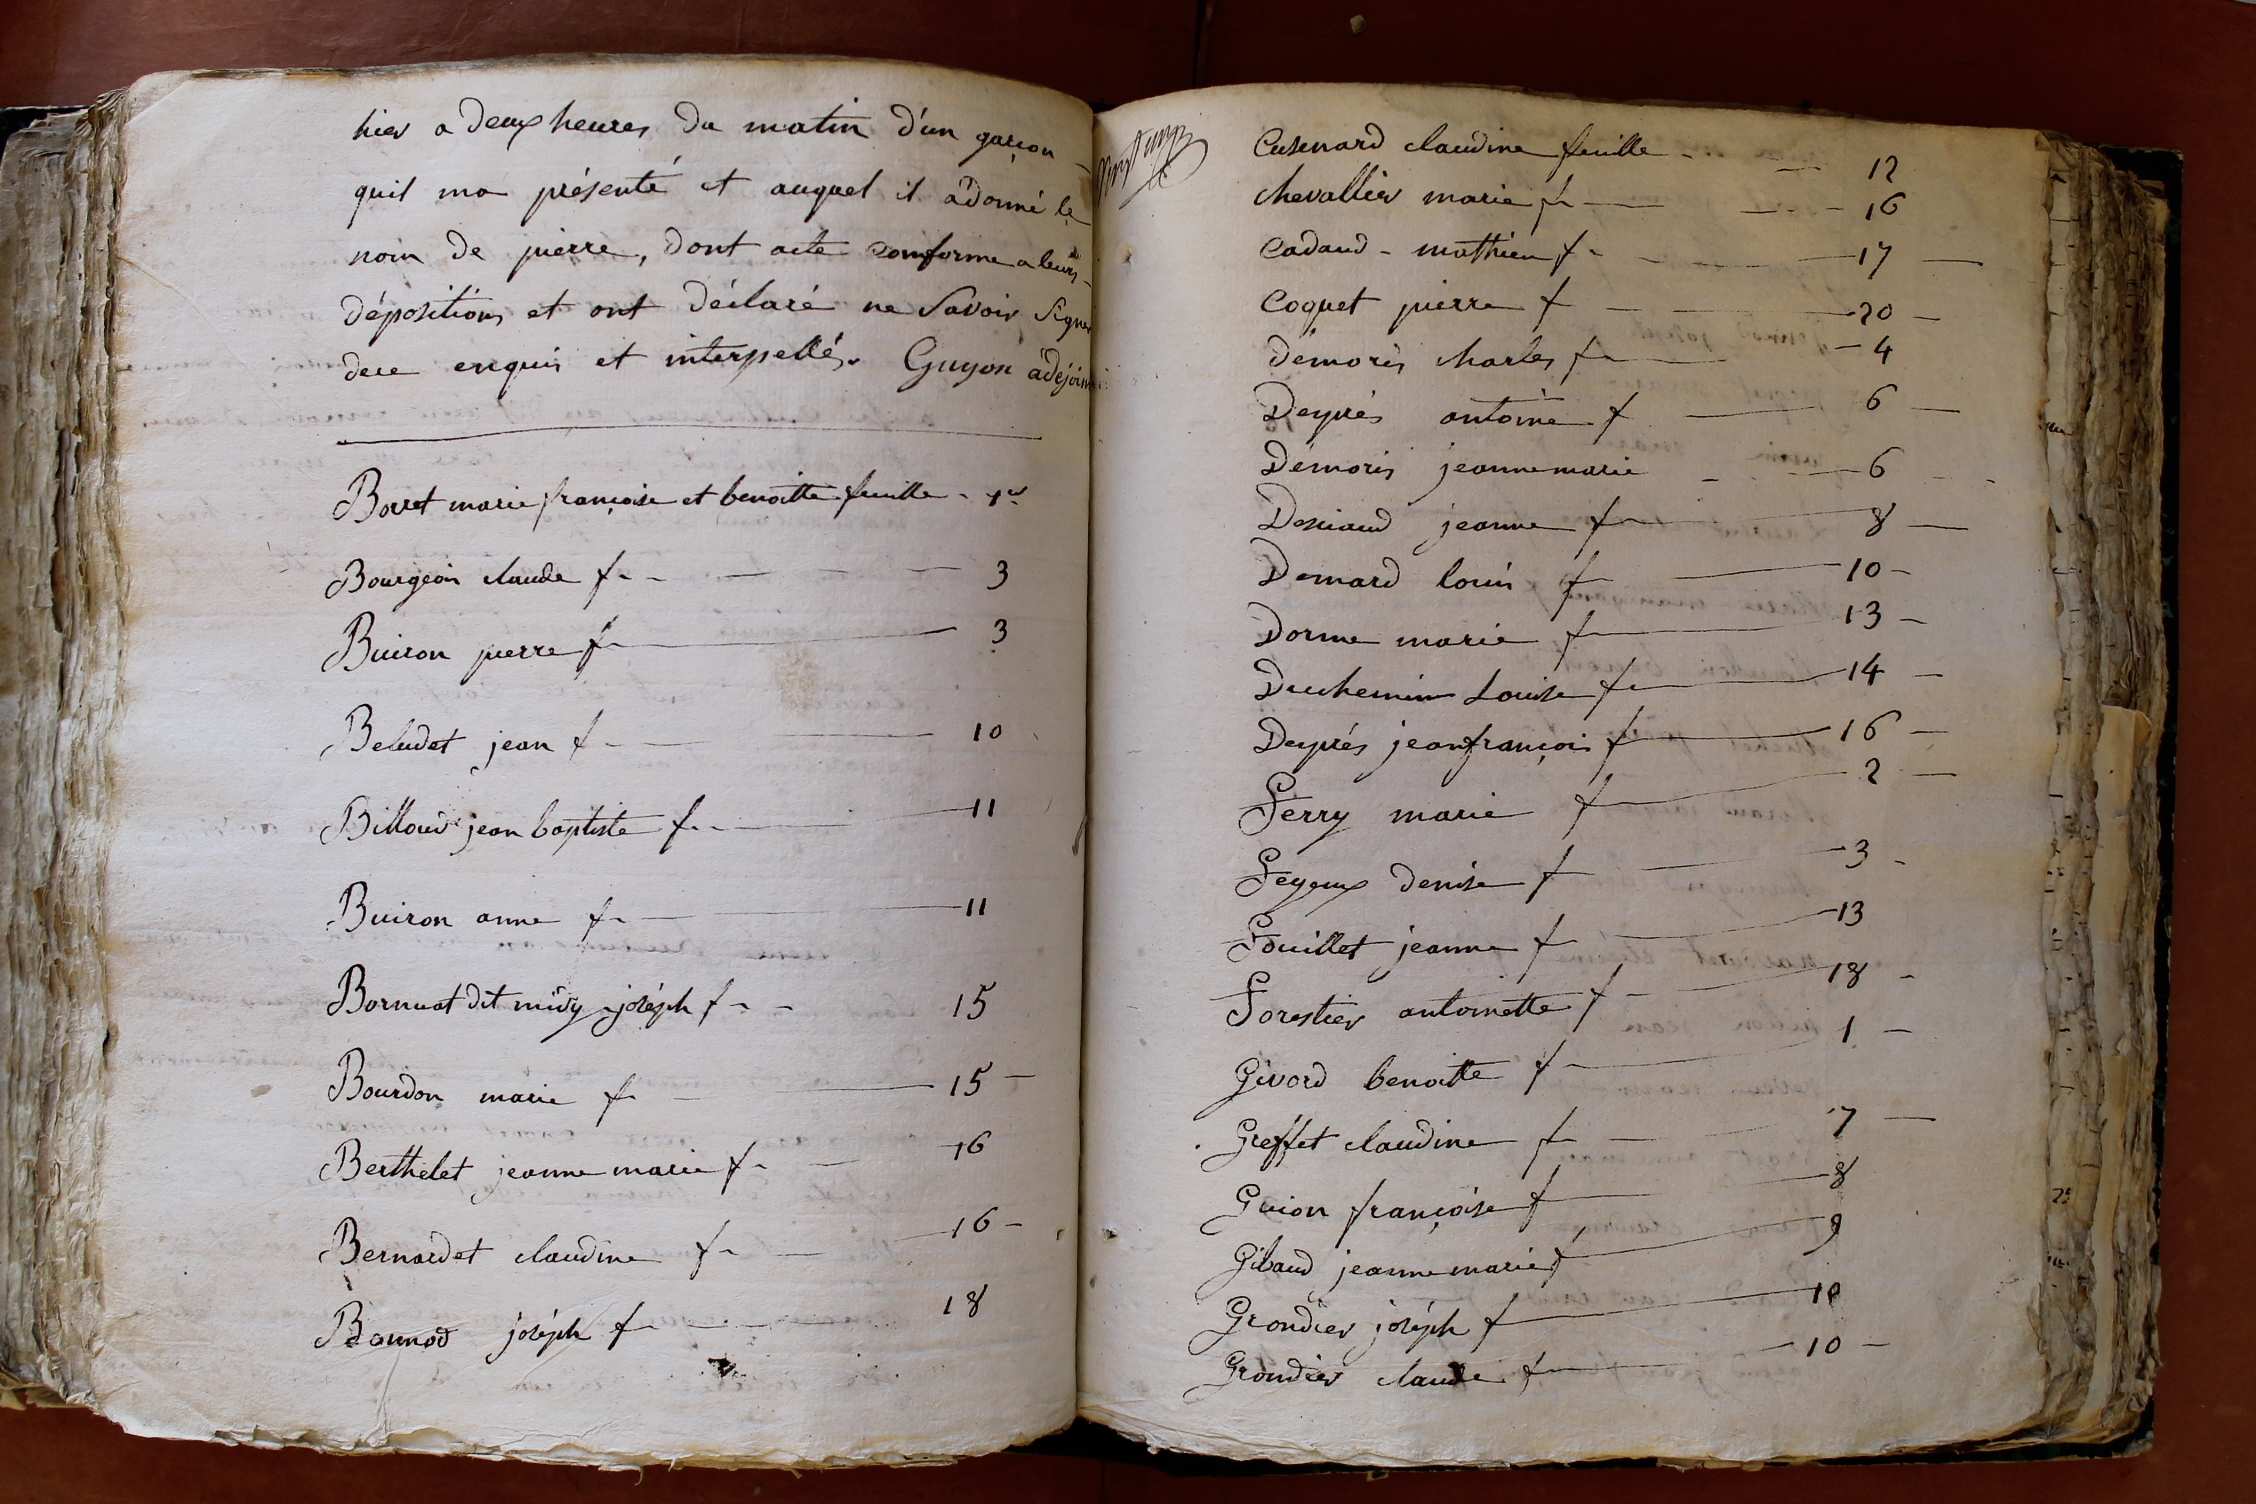 hier a deux heures du matin d'un garçon
quil ma présenté et auquel il a donné le
nom de pierre, dont acte conforme a leurs
dépositions et ont déclaré ne savoir signer
dece enquis et interpellés. Guyon adejoint
Borret marie françoise et benoitte feuille - 1er
Bourgeois claude f - 3
Buiron pierre f - 3
Beludet jean f - 10
Billoud jean baptiste f - 11
Buiron anne f - 11
Bornuat dit midy joséph f - 15
Bourdon marie f - 15
Berthelet jeanne marie f - 16
Bernardet claudine f - 16
Bonnod joséph f - 18
Cusenard claudine feuille - 12
chevallier marie f - 16
Cadaud - mathieu f - 17
Coquet pierre f - 20
démoris charles f - 4
Deprés antoine f - 6
Démoris jeanne marie - 6
Desviaud jeanne f - 8
Demard louis f - 10
Dorme marie f - 13
Duchemin Louise f - 14
Deprés jean françois f - 16
Ferry marie f - 2
Feyeux denise f - 3
Fouillet jeanne f - 13
Forestier antoinette f - 18
Givord benoitte f - 1
Greffet claudine f - 7
Guion françoise f - 8
Gibaud jeanne marie f - 9
Grondier joséph f - 10
Grondier claude f - 10